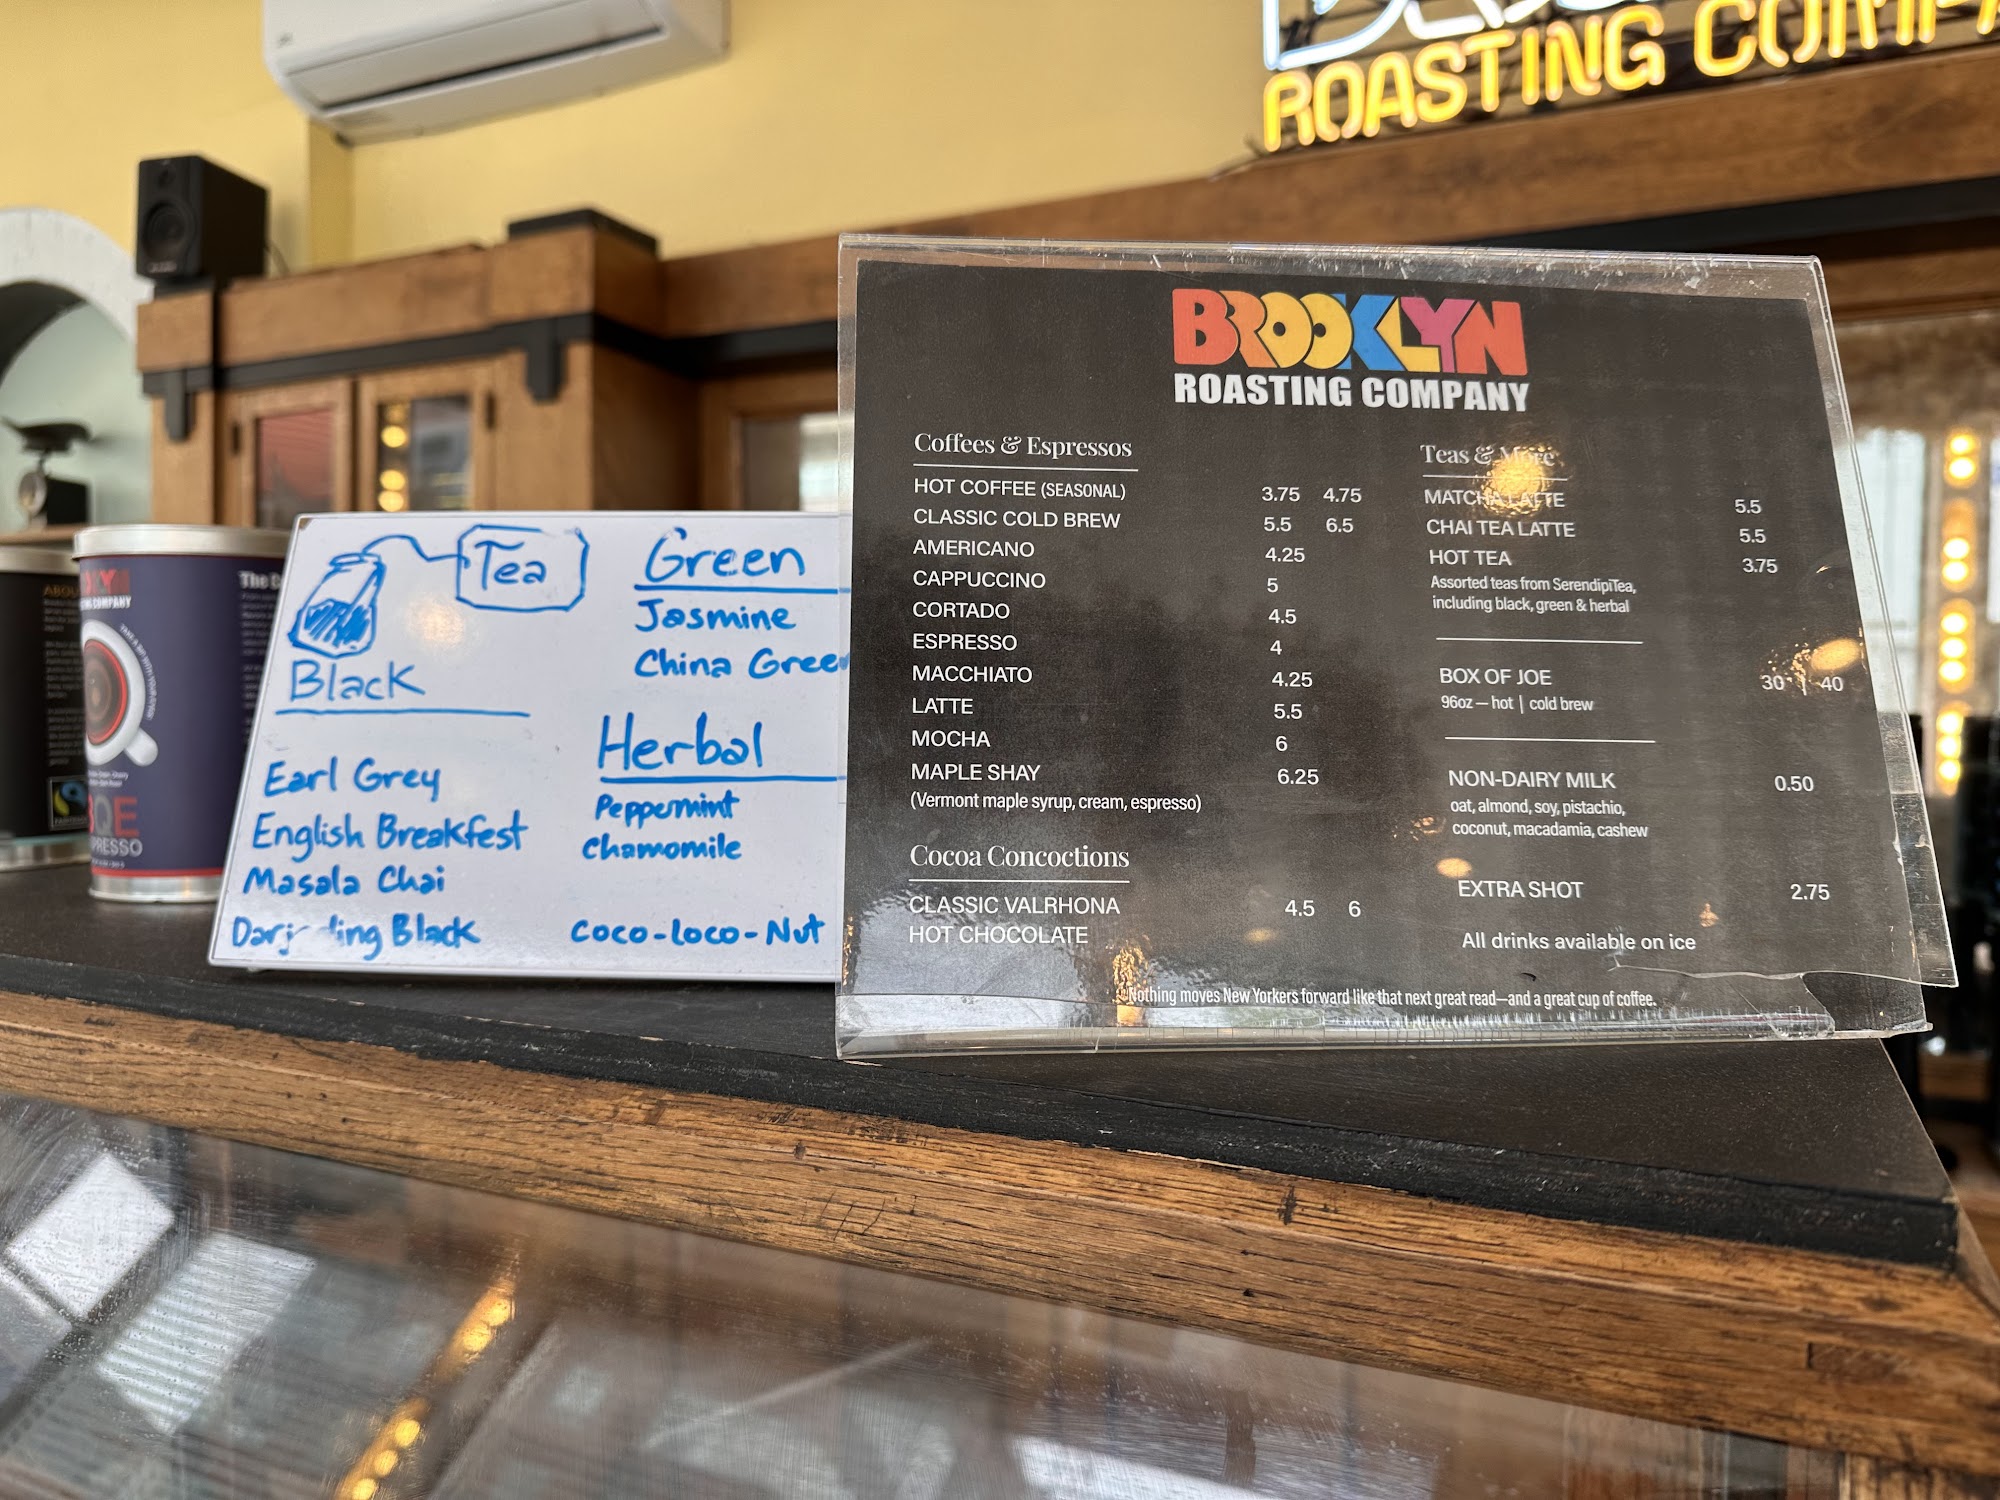 ROASTING
BROOKLYN
ROASTING COMPANY
Coffees & Espressos
HOT COFFEE (SEASONAL) 3.75 4.75
CLASSIC COLD BREW 5.5 6.5
AMERICANO 4.25
CAPPUCCINO 5
CORTADO 4.5
ESPRESSO 4
MACCHIATO 4.25
LATTE 5.5
MOCHA 6
MAPLE SHAY 6.25
(Vermont maple syrup, cream, espresso)
Cocoa Concoctions
CLASSIC VALRHONA 4.5 6
HOT CHOCOLATE
Teas & More
MATCHA LATTE 5.5
CHAI TEA LATTE 5.5
HOT TEA 3.75
Assorted teas from SerendipiTea,
including black, green & herbal
BOX OF JOE 30 | 40
96oz — hot | cold brew
NON-DAIRY MILK 0.50
oat, almond, soy, pistachio,
coconut, macadamia, cashew
EXTRA SHOT 2.75
All drinks available on ice
Nothing moves New Yorkers forward like that next great read—and a great cup of coffee.
Tea
Black
Earl Grey
English Breakfest
Masala Chai
Darjeeling Black
Green
Jasmine
China Green
Herbal
Peppermint
Chamomile
Coco-loco-Nut